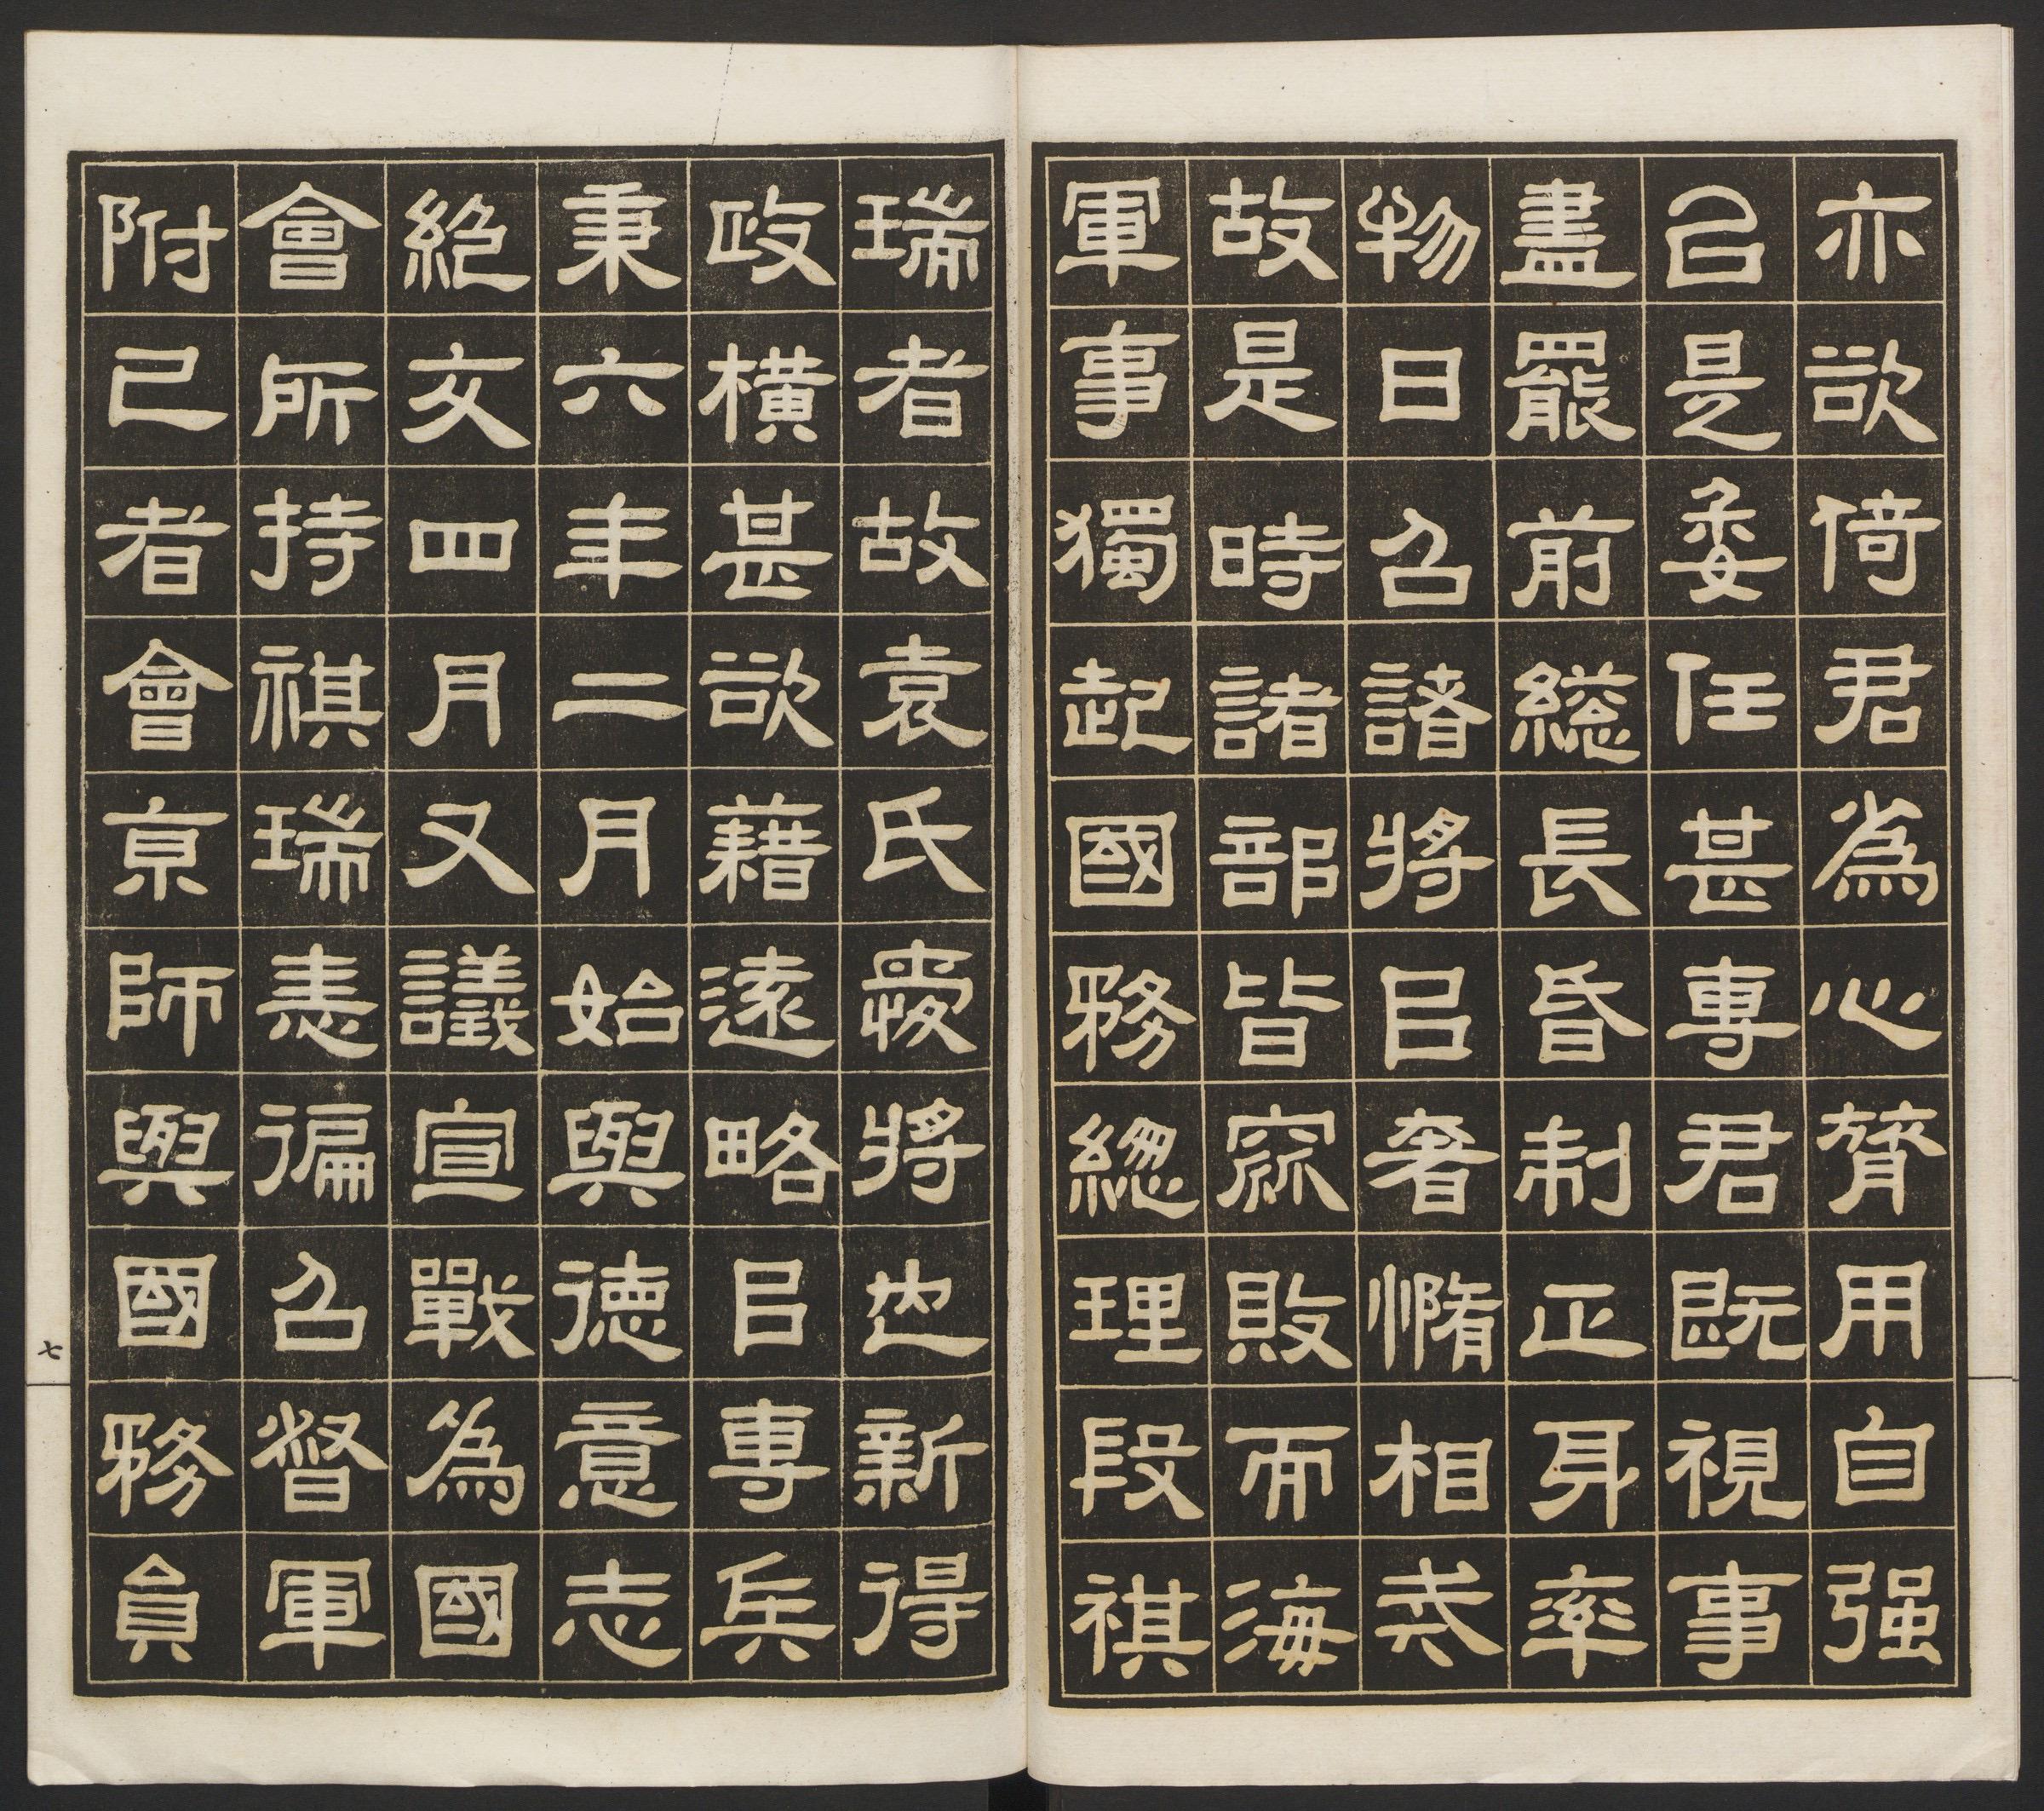 亦欲倚君為心膂用自强
㠯是委任甚專君既視事
盡罷前總長昏制正身率
物日召諸將㠯奢惰相戒
故是時諸部皆窳敗而海
軍事獨起國務總理段祺
瑞者故袁氏愛將也新得
政橫甚欲藉遠略㠯專兵
秉六年二月始與德意志
絕交四月又議宣戰為國
會所持祺瑞恚徧召督軍
附己者會京師與國務員
七